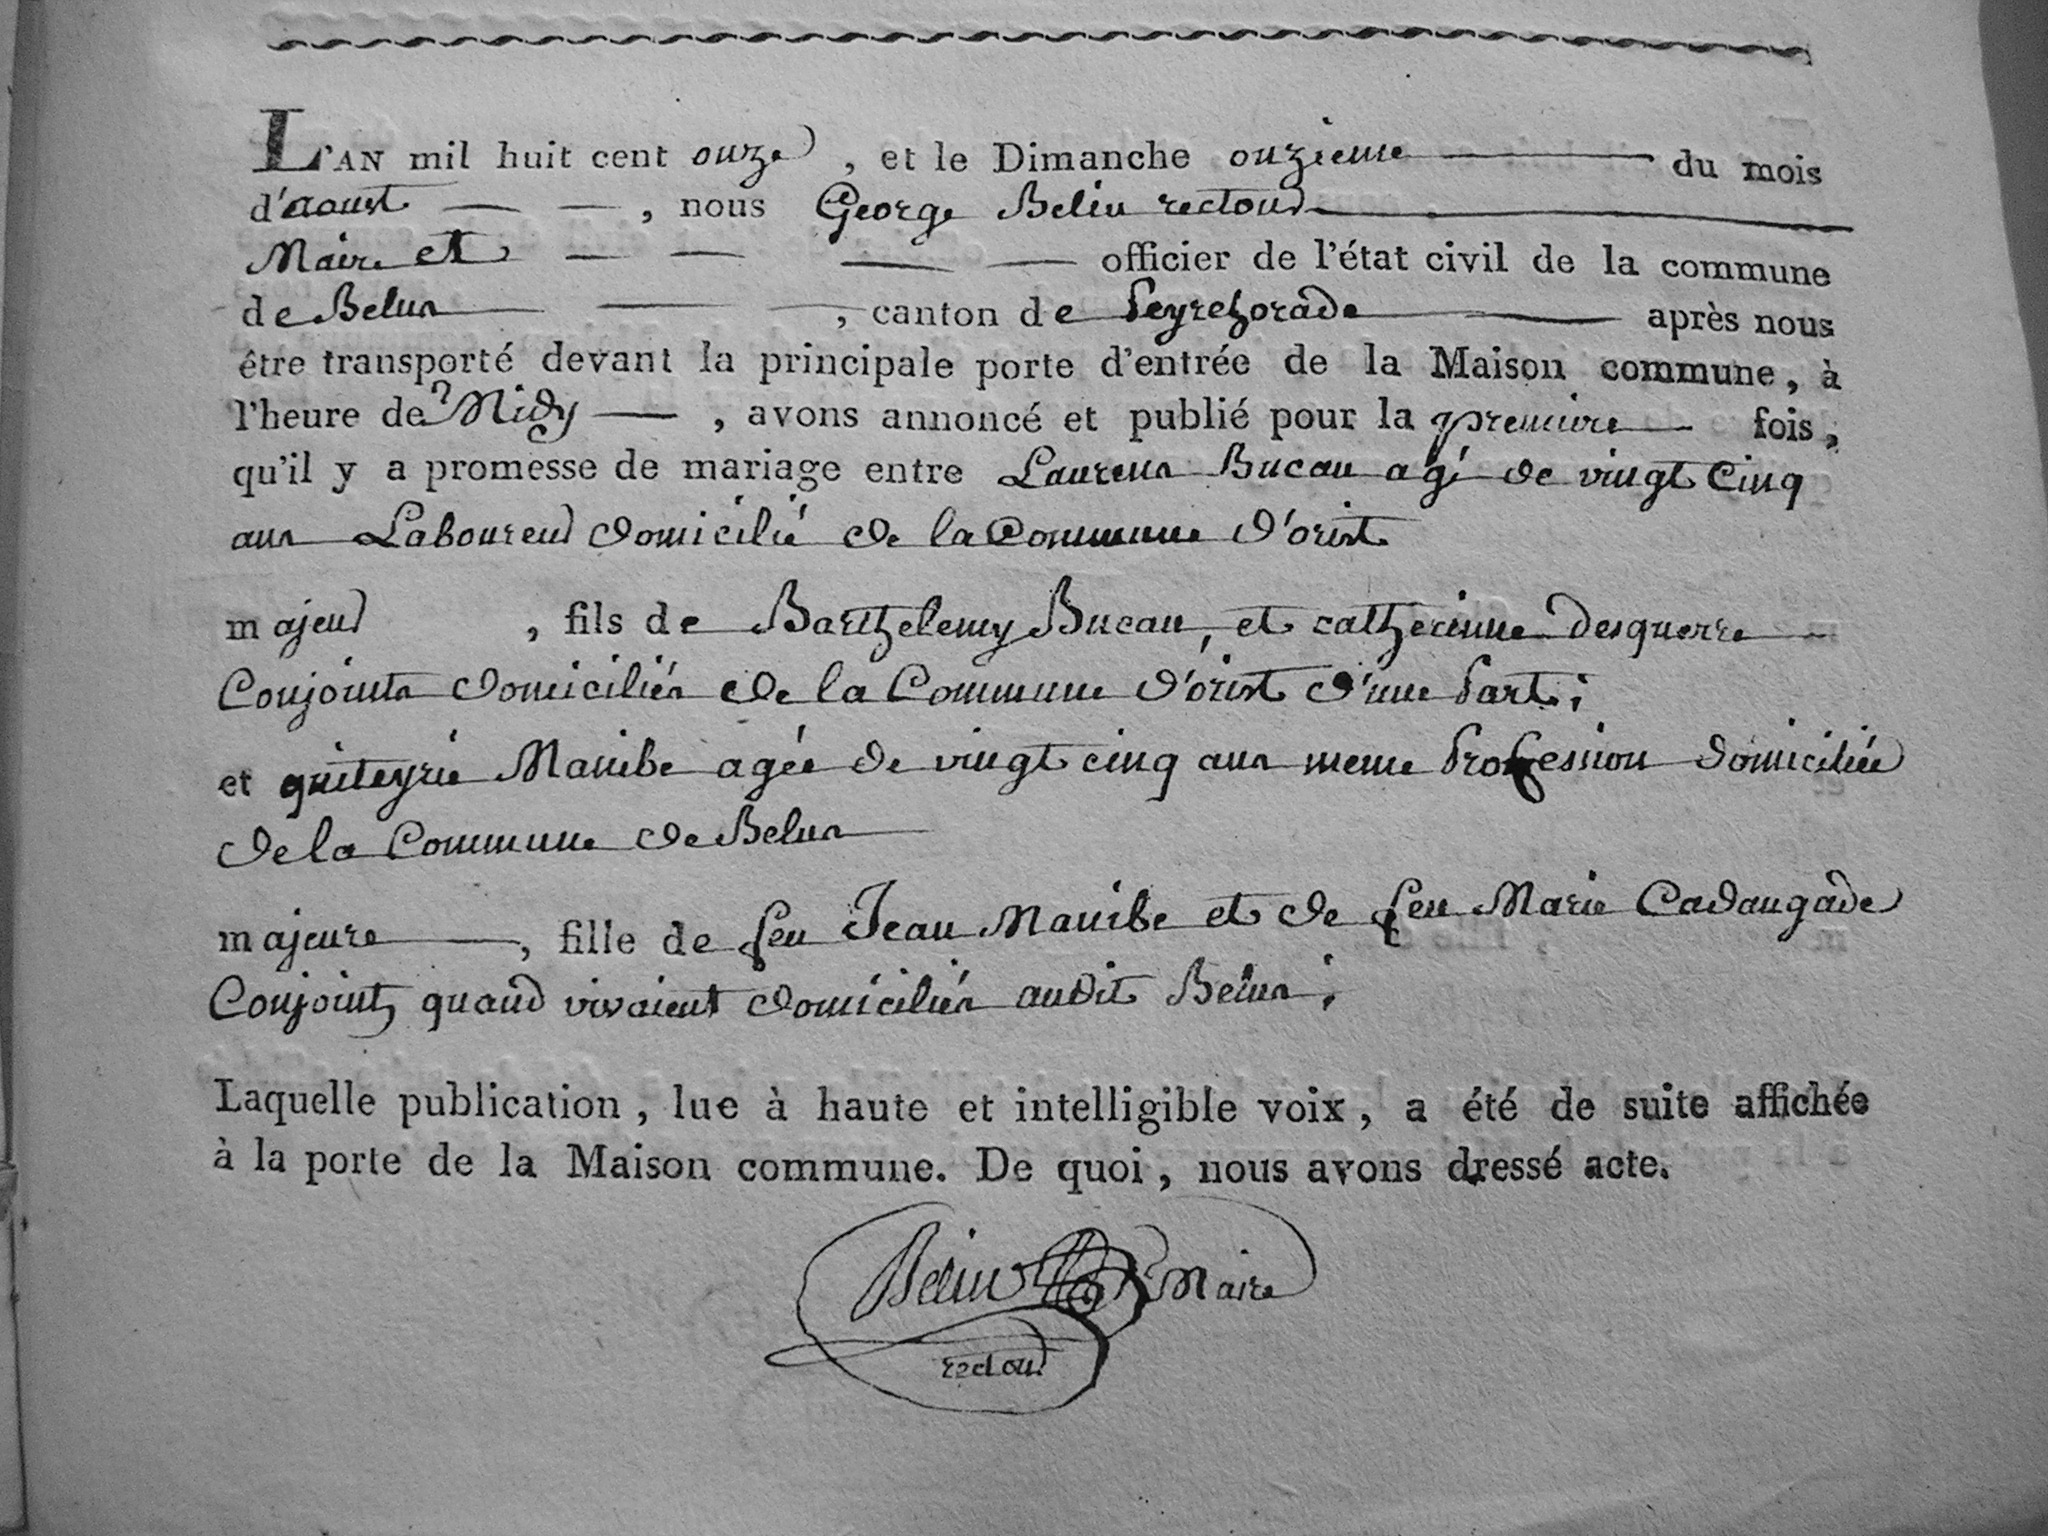 L'AN mil huit cent onze , et le Dimanche onzieme du mois
d'aoust , nous George Belin rectour
Maire et officier de l'état civil de la commune
de Belus , canton de Peyrehorade après nous
être transporté devant la principale porte d'entrée de la Maison commune, à
l'heure de Midy , avons annoncé et publié pour la premiere fois,
qu'il y a promesse de mariage entre Laurens Bucau agé de vingt Cinq
ans Laboureur domicilié de la Commune d'orist
majeur , fils de Barthelemy Bucau, et catherinne desquerre
Conjoints domiciliés de la Commune d'orist d'une part;
et quiteyrie Manibe agée de vingt cinq ans meme Profession domiciliée
de la Commune de Belus
majeure , fille de feu Jean Manibe et de feu Marie Cadaugade
Conjoints quand vivaient domiciliés audit Belus;
Laquelle publication, lue à haute et intelligible voix, a été de suite affichée
à la porte de la Maison commune. De quoi, nous avons dressé acte.
Belin Maire
rectour